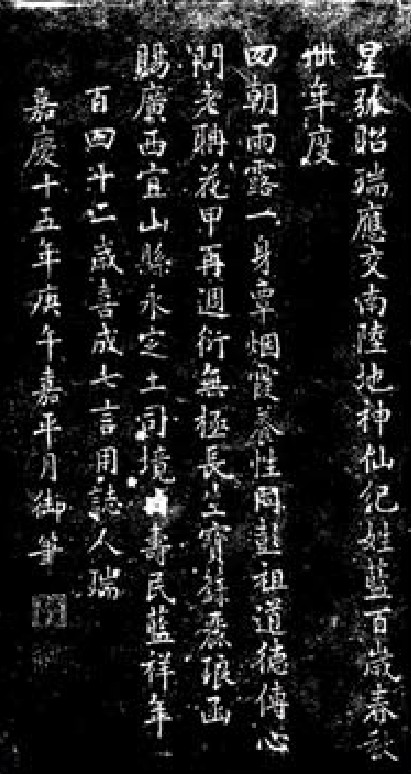 星弧昭瑞應交南陸地神仙紀姓藍百歲春秋
卌年度
四朝雨露一身覃烟霞養性同彭祖道德傳心
問老聃花甲再週衍無極長生寶籙麗琅函
賜廣西宜山縣永定土司境壽民藍祥年
百四十二歲喜成七言用誌人瑞
嘉慶十五年庚午嘉平月御筆